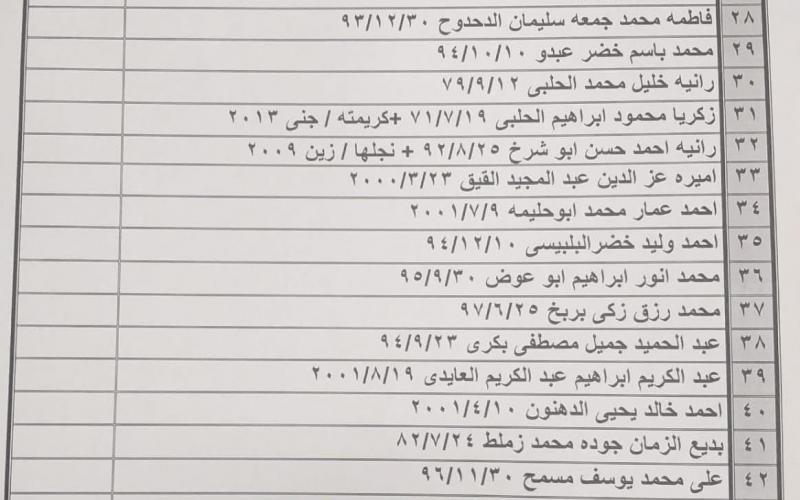 ٢٨ فاطمه محمد جمعه سليمان الدحدوح ٩٣/١٢/٣٠
٢٩ محمد باسم خضر عبدو ٩٤/١٠/١٠
٣٠ رانيه خليل محمد الحلبى ٧٩/٩/١٢
٣١ زكريا محمود ابراهيم الحلبى ٧١/٧/١٩ +كريمته / جنى ٢٠١٣
٣٢ رانيه احمد حسن ابو شرخ ٩٢/٨/٢٥ + نجلها / زين ٢٠٠٩
٣٣ اميره عز الدين عبد المجيد القيق ٢٠٠٠/٣/٢٣
٣٤ احمد عمار محمد ابوحليمه ٢٠٠١/٧/٩
٣٥ احمد وليد خضرالبلبيسى ٩٤/١٢/١٠
٣٦ محمد انور ابراهيم ابو عوض ٩٥/٩/٣٠
٣٧ محمد رزق زكى بربخ ٩٧/٦/٢٥
٣٨ عبد الحميد جميل مصطفى بكرى ٩٤/٩/٢٣
٣٩ عبد الكريم ابراهيم عبد الكريم العايدى ٢٠٠١/٨/١٩
٤٠ احمد خالد يحيى الدهنون ٢٠٠١/٤/١٠
٤١ بديع الزمان جوده محمد زملط ٨٢/٧/٢٤
٤٢ على محمد يوسف مسمح ٩٦/١١/٣٠